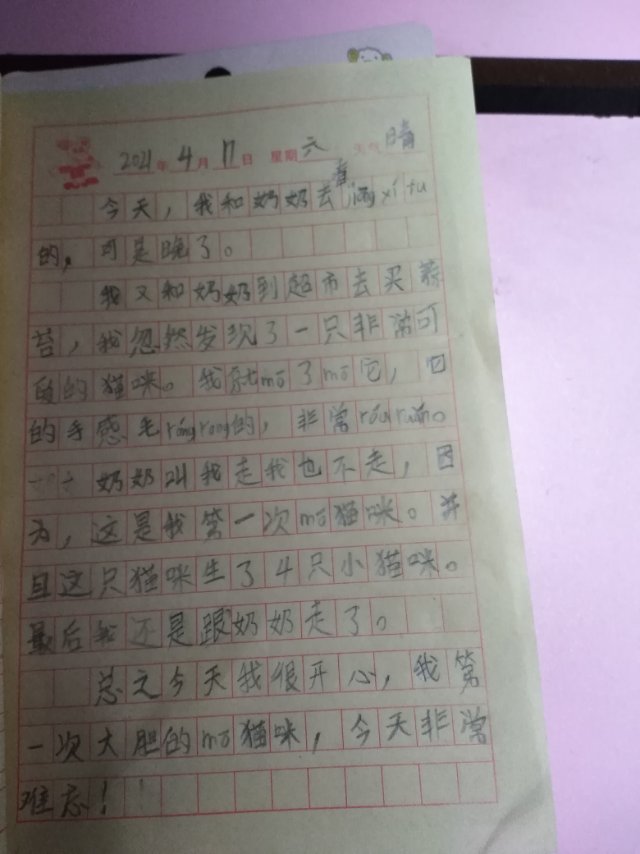 2021年4月17日 星期六 天气晴
今天，我和奶奶去看jīng xì fu
的，可是晚了。
我又和奶奶到超市去买蘑
苔，我忽然发现了一只非常可
的猫咪。我就mō了mō它，它
的手感毛róng rong的，非常róu ruǎn。
奶奶叫我走我也不走，因
为，这是我第一次mō猫咪。并
且这只猫咪生了4只小猫咪。
最后我还是跟奶奶走了。
总之今天我很开心，我第
一次大胆的mō猫咪，今天非常
难忘！